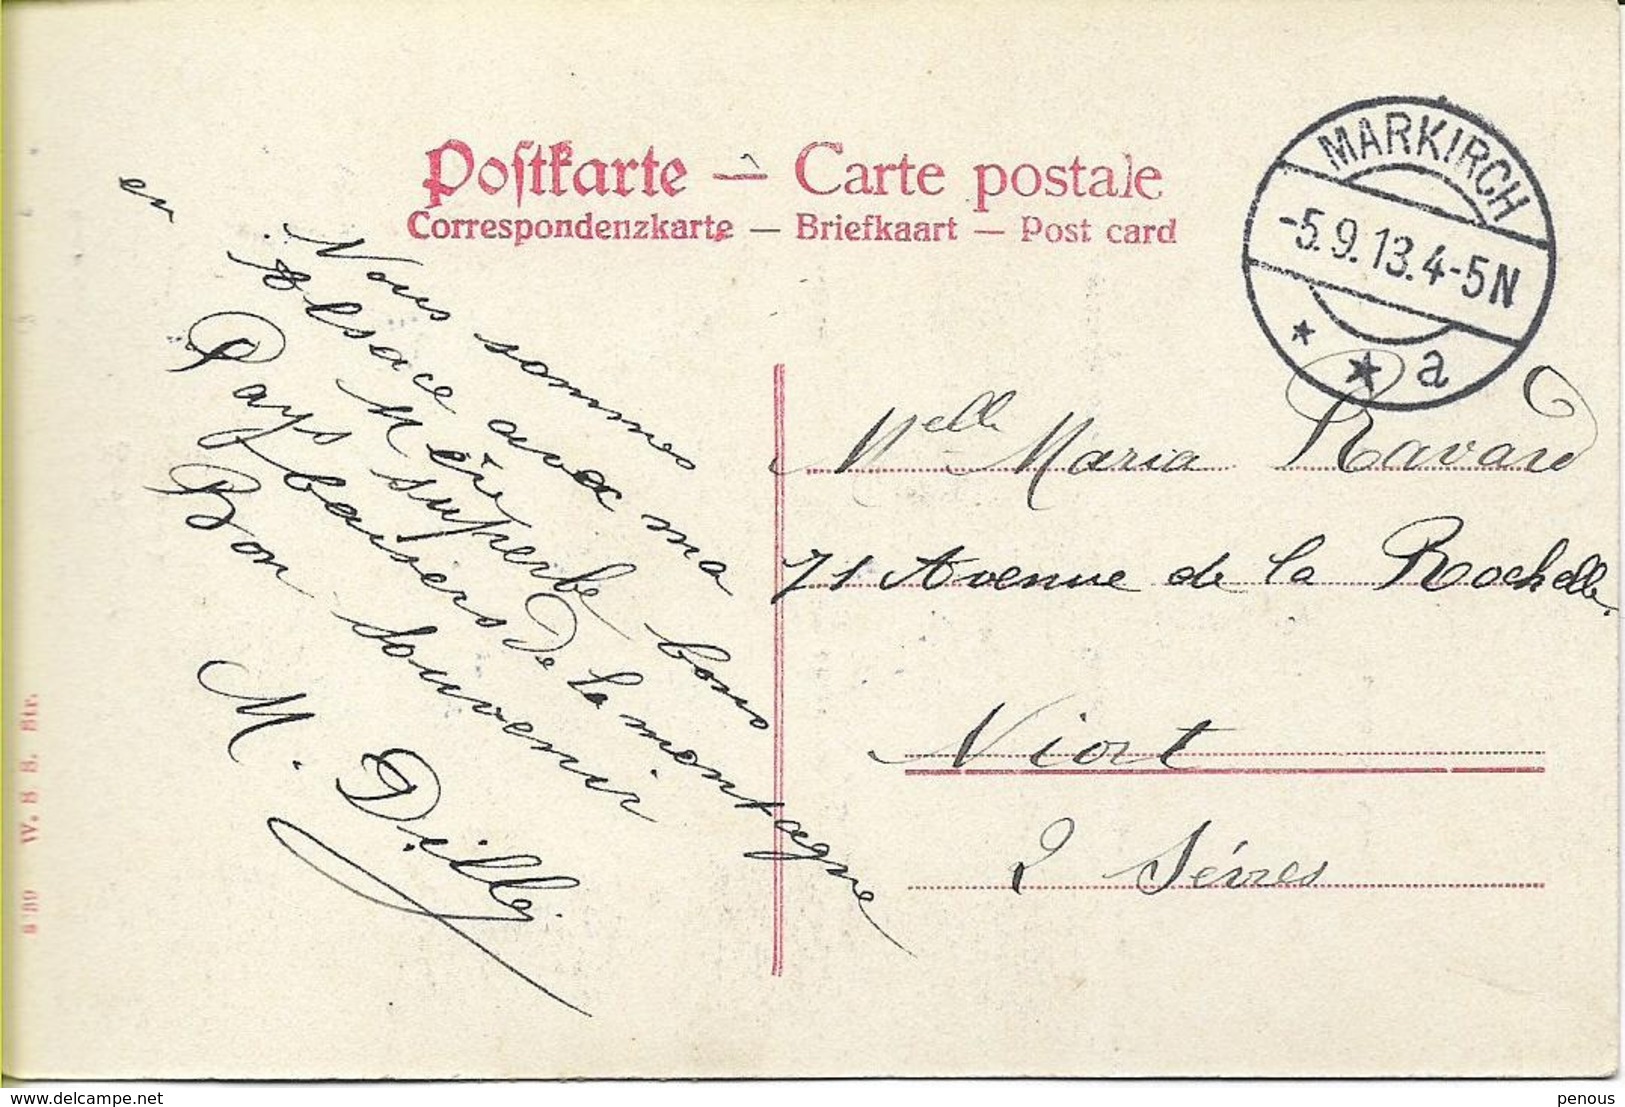 Postkarte — Carte postale
Correspondenzkarte — Briefkaart — Post card
MARKIRCH
-5.9.13.4-5N
* * a
Nous sommes
en Alsace avec ma
Mère
Pays superbe bons
baisers De la montagne
Bon Souvenir
M. Dilly.
Melle Maria Ravard
71 Avenue de la Rochelle.
Niort
2 Sévres
W. S S. Str.
delcampe.net
penous